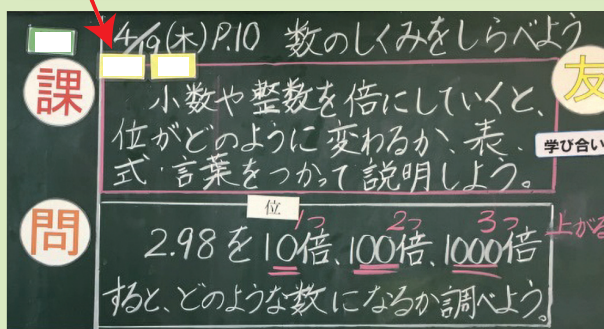 4/19(木)P.10 数のしくみをしらべよう
課
友
小数や整数を倍にしていくと、
位がどのように変わるか、表、
式・言葉をつかって説明しよう。
学び合い
問
位 1つ 2つ 3つ 上がる
2.98を10倍、100倍、1000倍
すると、どのような数になるか調べよう。